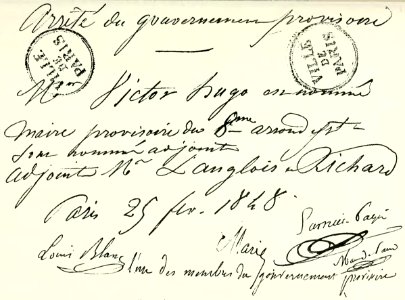 Arrêté du gouvernement provisoire
VILLE DE PARIS
VILLE DE PARIS
Mr Victor Hugo est nommé
maire provisoire du 8ème arrondist
sont nommés adjoints
adjoints Mr Langlois et Richard
Paris 25 fév. 1848.
Garnier-Pagès
Marie
Louis Blanc
l'un des membres du gouvernement provisoire